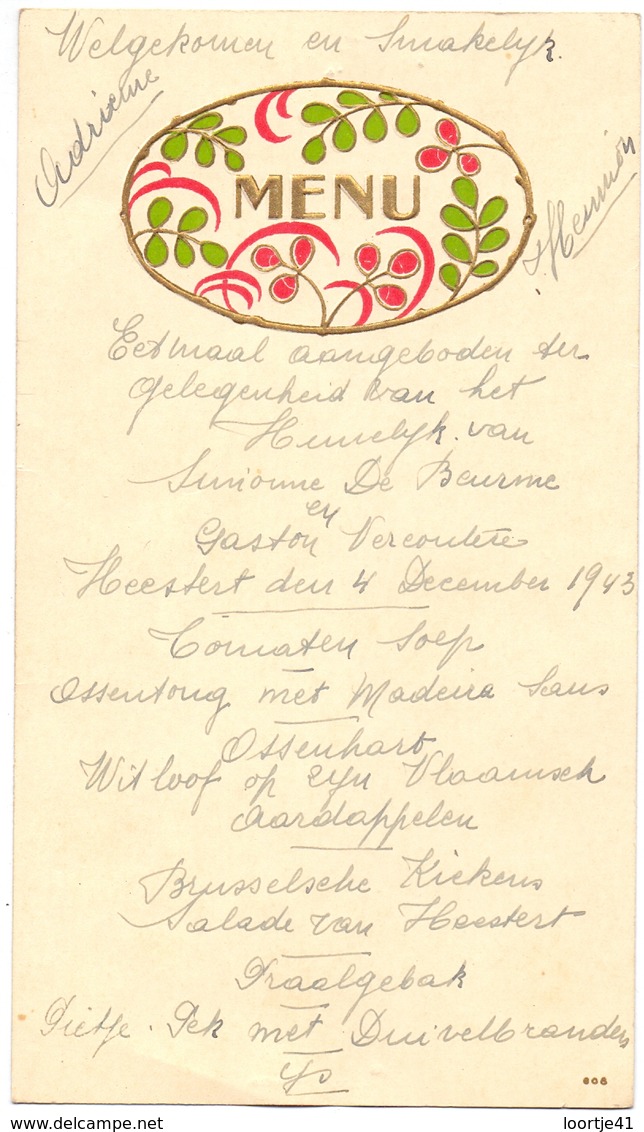 Welgekomen en Smakelyk.
Adrienne
MENU
Eetmaal aangeboden ter
gelegenheid van het
Huwelyk van
Simonne De Beurme
en
Gaston Vercoutere
Heestert den 4 December 1943
Tomaten Soep
Ossentong met Madeira Saus
Ossenhart
Witloof op zyn Vlaamsch
Aardappelen
Brusselsche Kiekens
Salade van Heestert
Praalgebak
Pietje Pek met Duivelbranders
Ys
608
© delcampe.net
loortje41